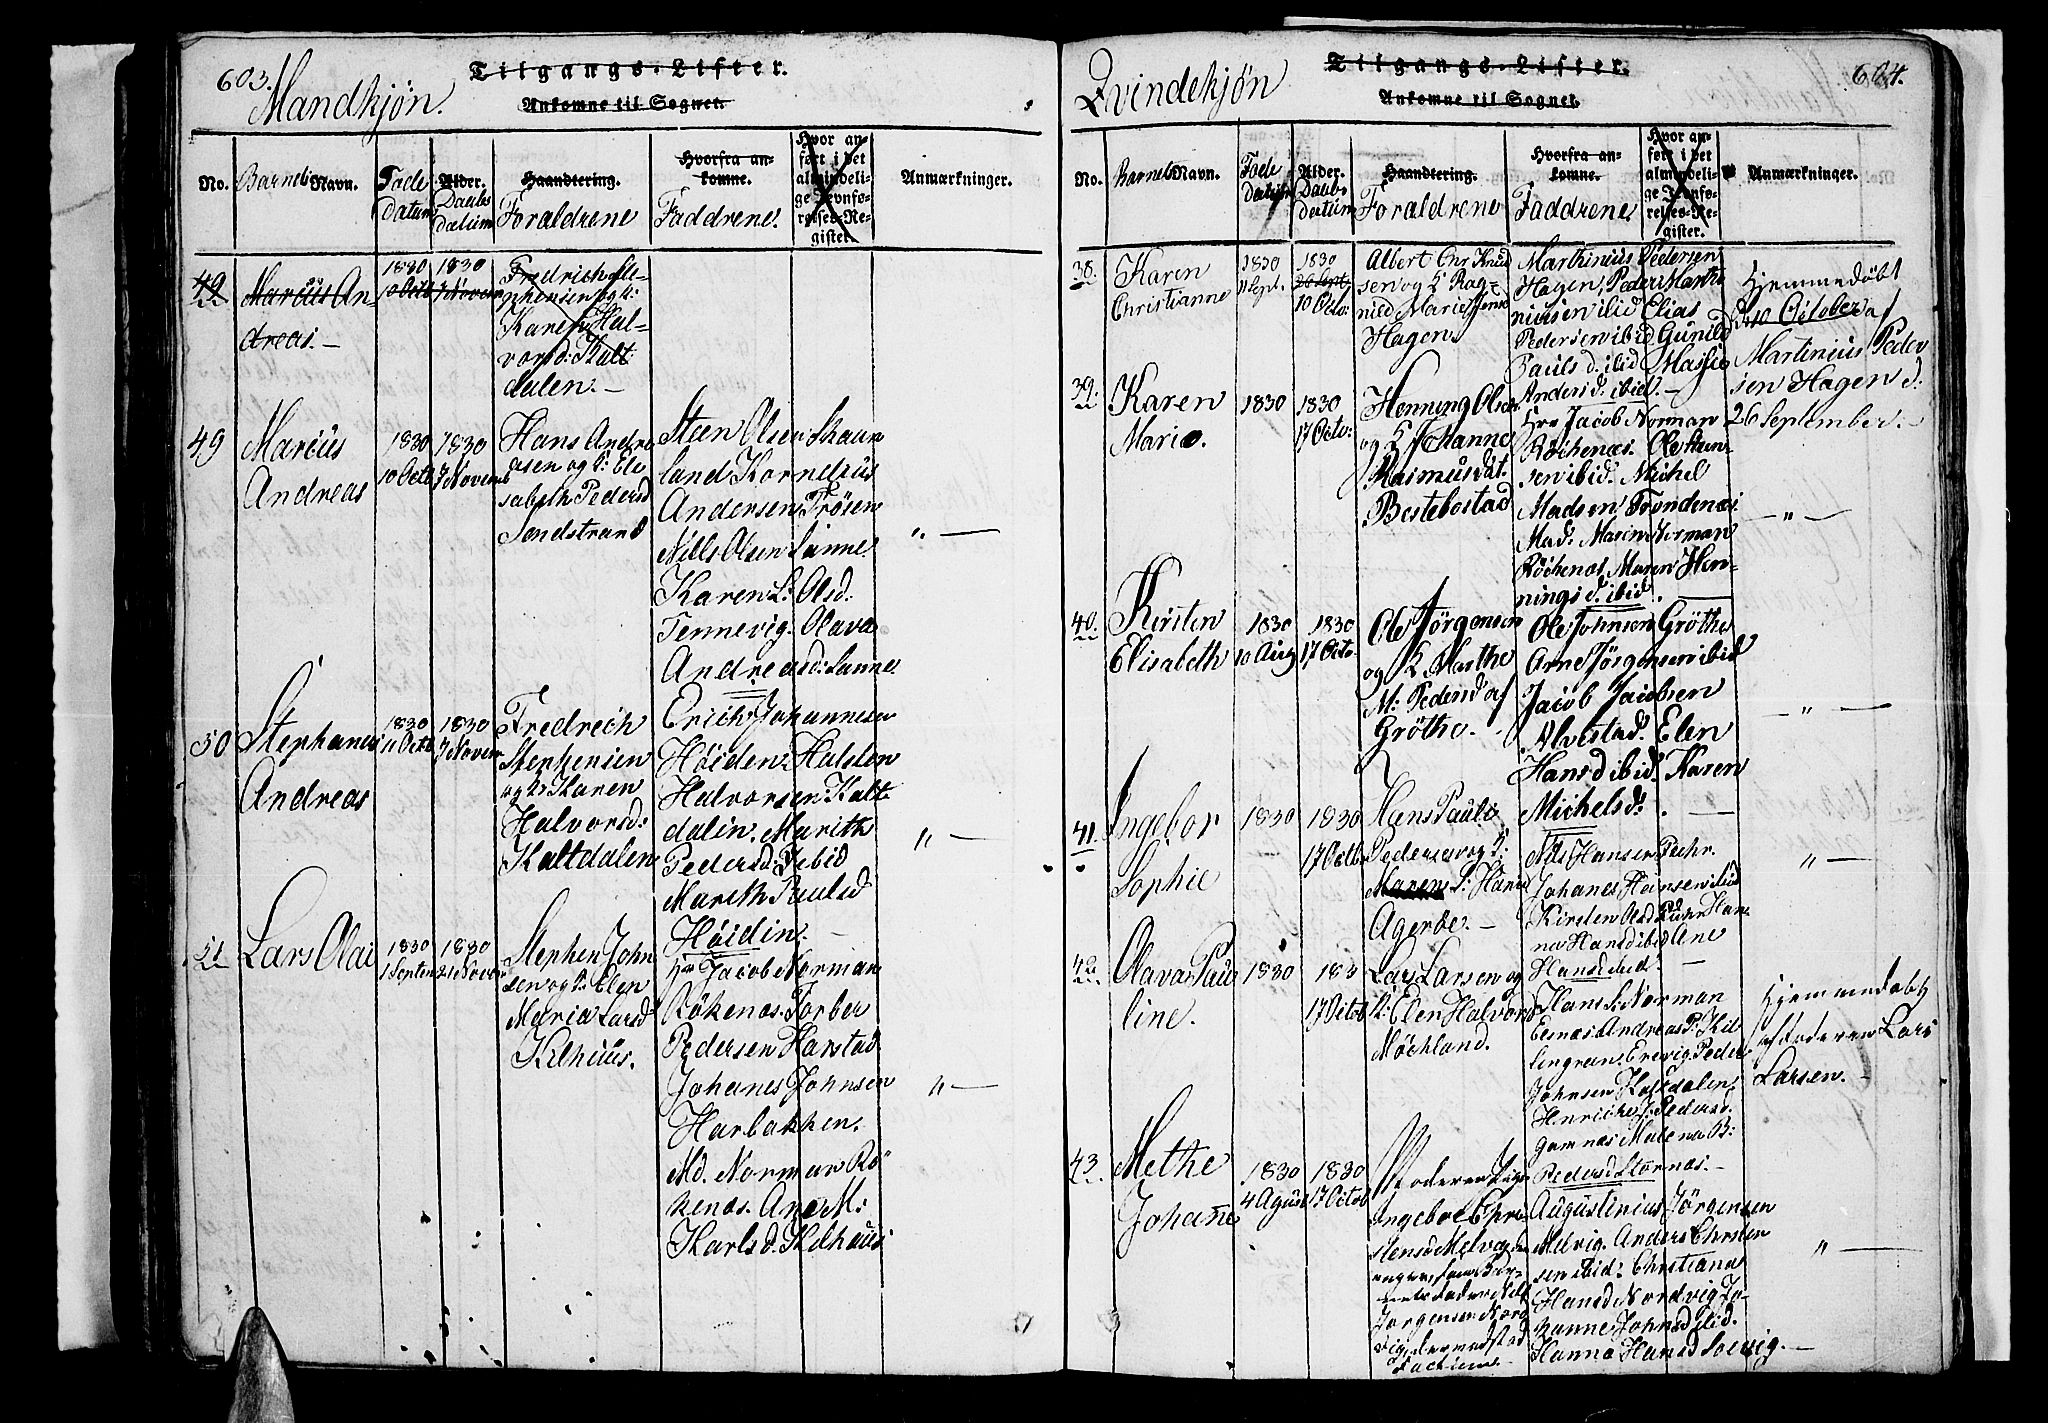 603.
Mandkjøn.
Tilgangs-Lister.
Ankomne til Sognet.
No.
Barnets Navn.
Føde datum
Alder. Daabs datum
Haandtering. Forældrene
Hvorfra ankomne. Faddrene.
Hvor anført i det almindelige Jevnførelses-Register.
Anmærkninger.
49
Marcus An-
dreas. —
1830
10 Octb
1830
7 Novem
Fredrich Ste-
phensen og k:
Karen Hal-
vorsd: Kalt
dalen. —
49
Marcus
Andreas
1830
10 Octb
1830
7 Novemb
Hans Andre
desen og k: Ele
sabeth Pedersd
Sandstrand
Steen Olsen Skaun
land Kornelius
Andersen Trösen
Nills Olsen Sanne
Karen L: Olsd:
Tennevig. Olava
Andreasd: Sanne
„ —
50
Stephanus
Andreas
1830
11 Octb
1830
7 Novem
Fredrich
Stephensen
og k: Karen
Halvorsd:
Kaltdalen
Erich Johannesen
Höiden. Halsten
Halvorsen Kalt
dalin. Marith
Pedersd: Ibid
Mareth Paulsd
Höidin. —
„ —
51
Lars Olai
1830
1 Septem
1830
21 Novem
Stephen John
sen og k: Elen
Maria Larsd
Kilhuus.
Hr Jacob Norman
Rökenæs. Torber
Pedersen Harstad
Johanes Johnsen
Harbakken.
Md. Norman Rö
kenæs. Ane M:
Karlsd. Kilhuus
„ —
604.
Qvindekjøn
Tilgangs-Lister.
Ankomne til Sognet.
No.
Barnets Navn.
Føde Datum
Alder. Daabs datum
Haandtering. Forældrene
Hvorfra ankomne. Faddrene
Hvor anført i det almindelige Jevnførelses-Register.
Anmærkninger.
38.
Karen
Christianne
1830
11 Sept.
1830
26 Sept
10 Octo:
Albert Chr Knud
sen og k Rag-
nild Marie Jensd
Hagen.
Marthinius Pedersen
Hagen, Peder Marthi
niusen ibid Elias
Pedersen ibid Gunild
Pauls d. ibid Massie
Anders d. ibid. —
Hjemmedöbt
d 10 October af
Martinius Peder
sen Hagen d:
26 September. —
39.
Karen
Marie.
1830
1830
17 Octo:
Henning Olsen
og k Johanne
Rasmusdat.
Bestebostad
Hr Jacob Norman
Röckenæs. Ole Hen-
sen ibid. Michel
Madsen Trondenæs
Mad: Maren Norman
Röckenæs, Maren Hen-
nings d. ibid. —
— „ —
40.
Kirsten
Elisabeth
1830
10 Aug
1830
17 Octo.
Ole Jörgensen
og k Marthe
M: Pedersd af
Gröthe.
Ole Johnsen Gröthe
Arne Jörgensen ibid
Jacob Jacobsen
Alvestad. Elen
Hansd ibid. Karen
Michelsd: . —
— „ —
41.
Ingebor
Sophie
1830
1830
17 Octb
Hans Paulu
Pedersen og k:
Maren
Agerbe. —
Nils Hansen Pechr.
Johanes Hansen ibid
Kirsten Olsd
na Hansd ibid Ane
Hansd ibid. —
„ —
42.
Olava Pau
line.
1830
183
17 Octob
Lars Larsen og
k: Elen Halvord
Möchland.
Hans P: Norman
Elenæs. Andreas P: Kil
lingran. Erevig. Peder
Johnsen Kaltdalen.
Henriche J: Pedersd.
Gamnæs Malena B:
Pedersd Stornæs. —
Hjemmedöbt
af Faderen Lars
Larsen. —
43.
Methe
Johane
1830
4 Agust
1830
17 Octob
Moderen Pige
Ingeboe Chri
stensd Melvig
angiver som Bar-
nets Fader Nils
Jörgensen Nord
vig
Augustinius Jörgensen
Melvig. Anders Christen
sen ibid: Christiana
Hansd Nordvig Jo-
hanne Johnsd ibid.
Hanna Hansd Solvig. —
„ —